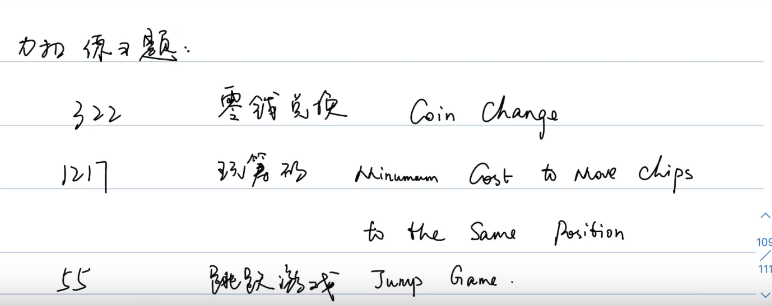 力扣 练习题:
322 零钱兑换 Coin Change
1217 玩筹码 Minumum Cost to Move Chips
to the Same Position
55 跳跃游戏 Jump Game.
109
111